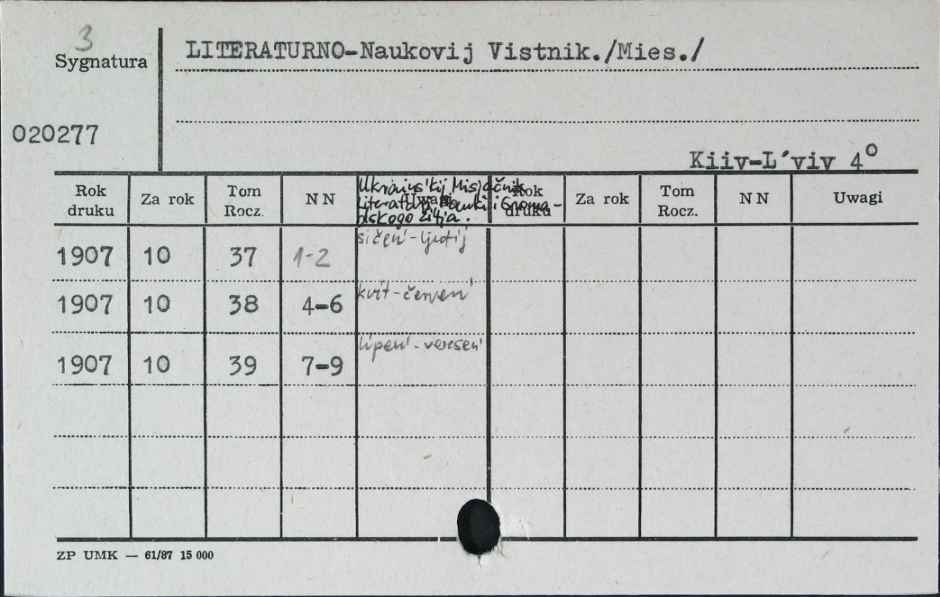 3
Sygnatura
LITERATURNO-Naukovij Vistnik./Mies./
020277
Kiiv-L´viv 4°
Rok druku Za rok Tom Rocz. NN Uwagi Rok druku Za rok Tom Rocz. NN Uwagi
Ukrains'kij Misjačnik
Literaturi, Nauki i Groma-
dskogo žitja.
1907 10 37 1-2 sičen'-ljutij
1907 10 38 4-6 kvit-červen'
1907 10 39 7-9 lipen'-veresen'
ZP UMK — 61/87 15 000